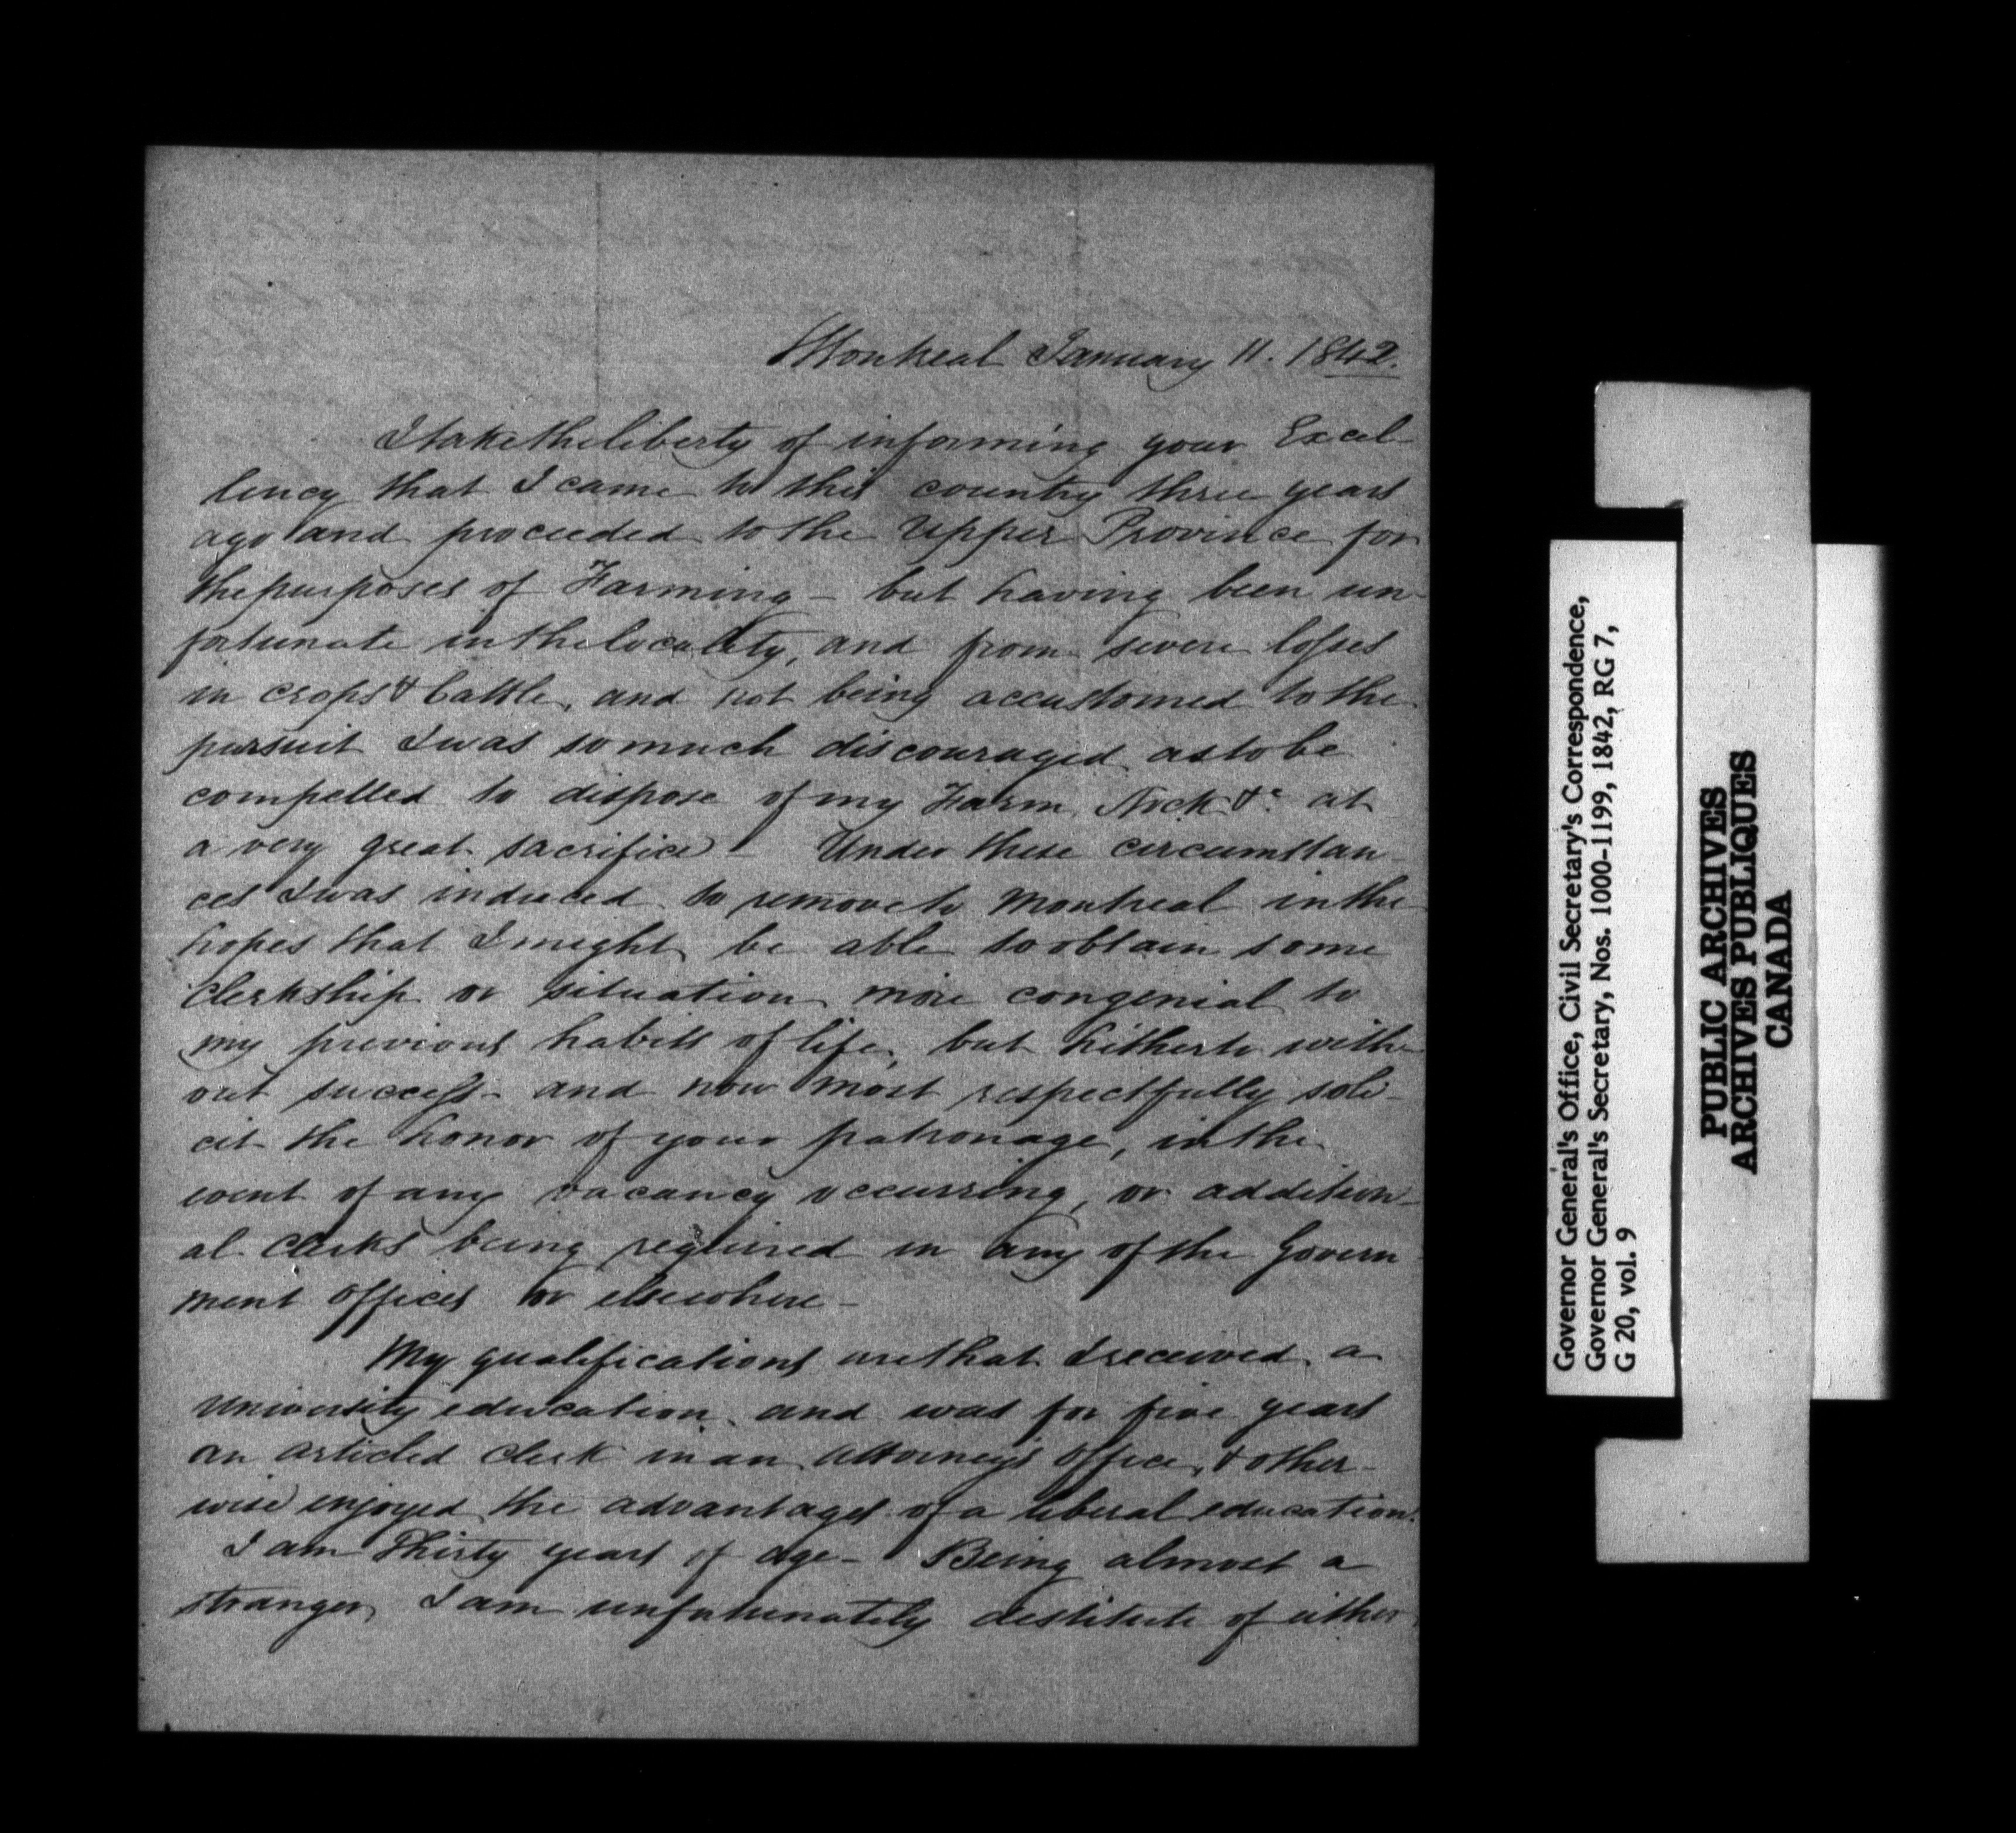 Montreal January 11. 1842.
I take the liberty of informing your Excel-
lency that I came to this country three years
ago and proceeded to the Upper Province for
the purposes of Farming - but having been un-
fortunate in the locality, and from severe losses
in crops & Cattle, and not being accustomed to the
pursuit I was so much discouraged as to be
compelled to dispose of my Farm, Stock &c at
a very great sacrifice - Under these circumstan-
ces I was induced to remove to Montreal in the
hopes that I might be able to obtain some
Clerkship or situation more congenial to
my previous habits of life, but hitherto with-
out success - and now most respectfully soli-
cit the honor of your patronage, in the
event of any vacancy occurring, or addition-
al clerks being required in any of the Govern-
ment offices or elsewhere -
My qualifications are that I received a
University education, and was for five years
an articled Clerk in an Attorney's office, & other-
wise enjoyed the advantages of a liberal education.
I am Thirty years of age - Being almost a
stranger, I am unfortunately destitute of either
Governor General's Office, Civil Secretary's Correspondence,
Governor General's Secretary, Nos. 1000-1199, 1842, RG 7,
G 20, vol. 9
PUBLIC ARCHIVES
ARCHIVES PUBLIQUES
CANADA